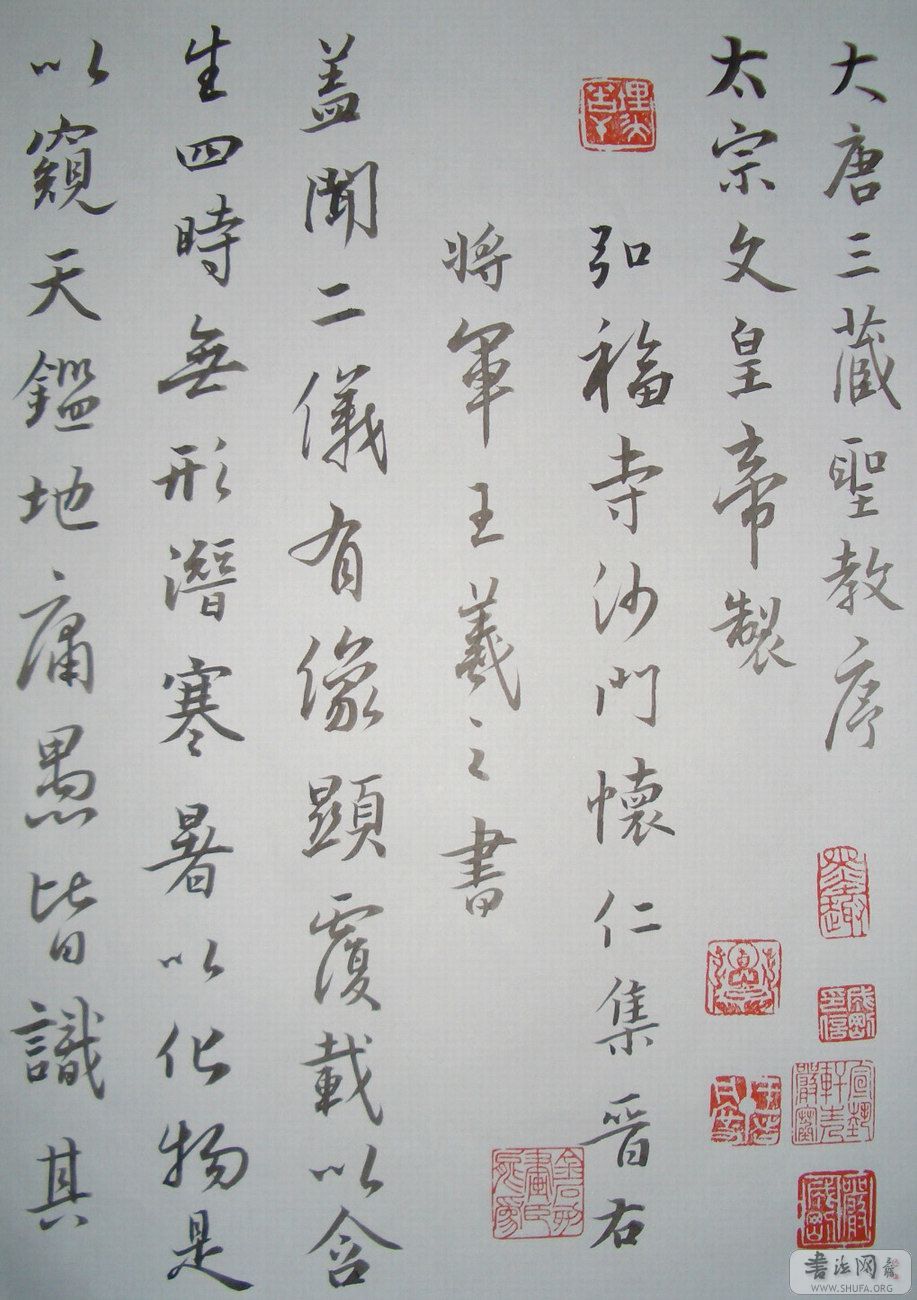 大唐三藏聖教序
太宗文皇帝製
弘福寺沙門懷仁集晉右
將軍王羲之書
盖聞二儀有像顯覆載以含
生四時無形潛寒暑以化物是
以窺天鑑地庸愚皆識其
書法网
WWW.SHUFA.ORG